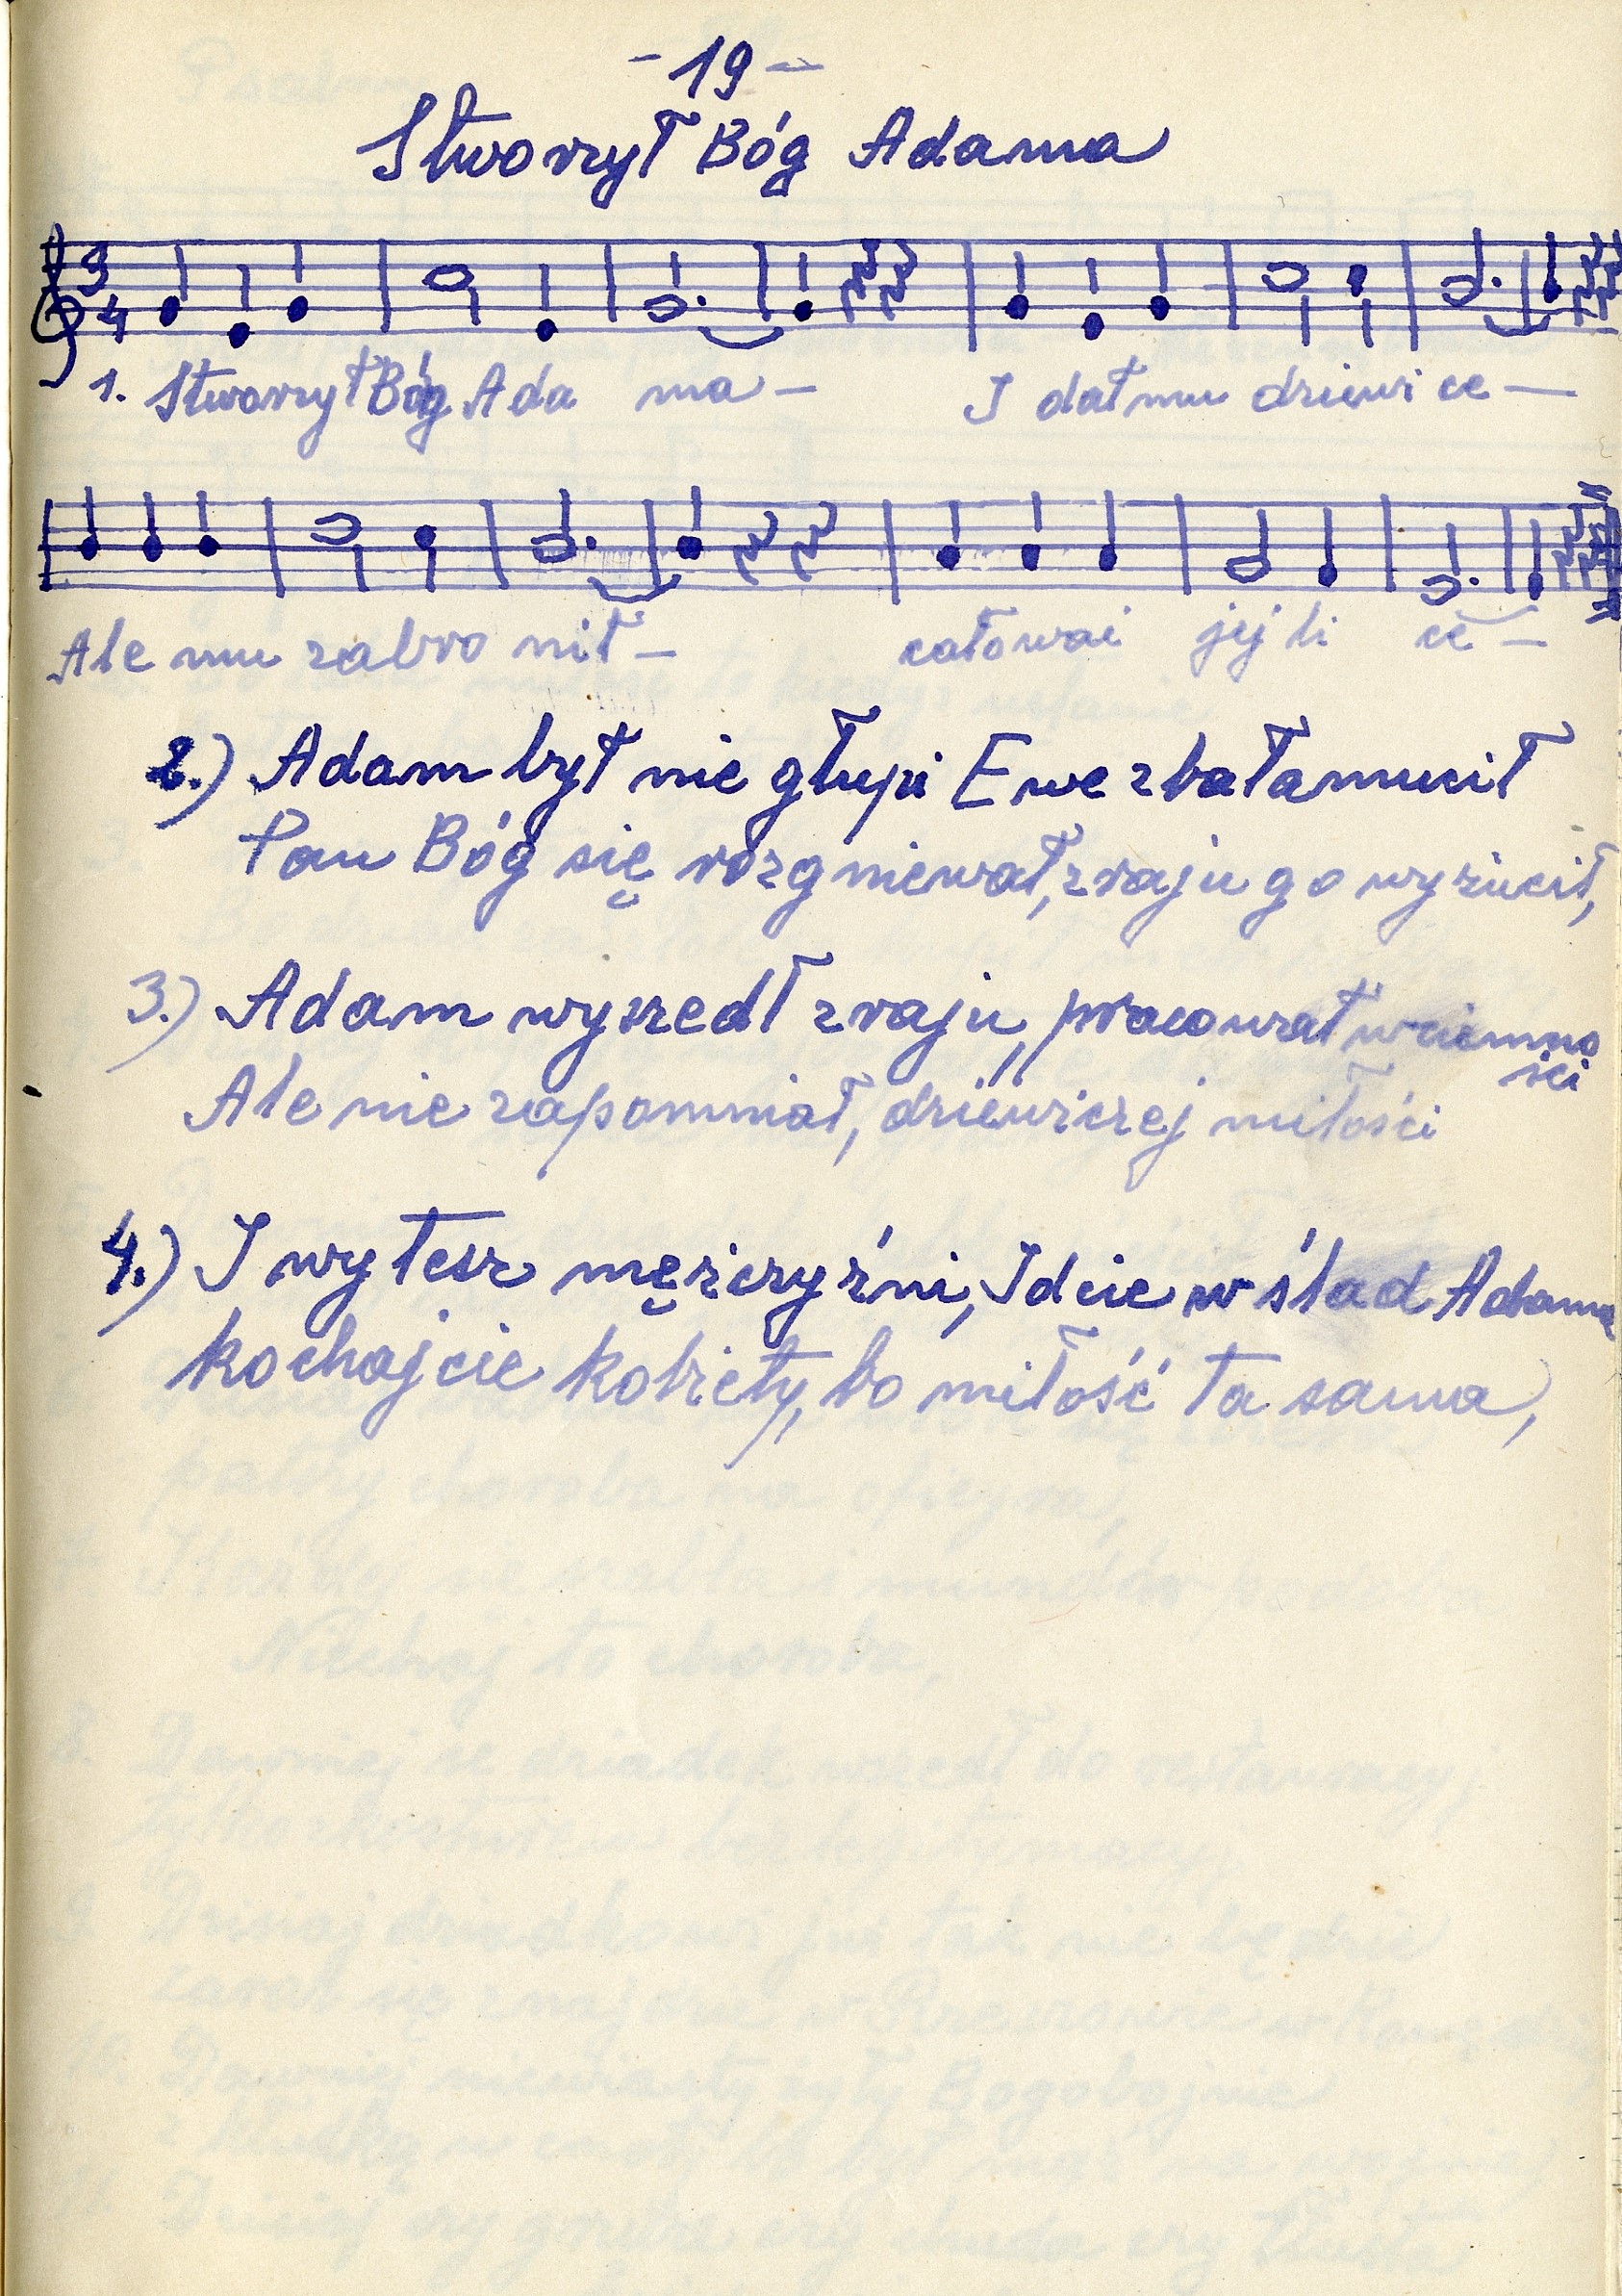 - 19 -
Stworzył Bóg Adama
3
4
1. Stworzył Bóg Ada ma - I dał mu dziewi ce -
Ale mu zabro nił - całować jej li ce -
2.) Adam był nie głupi Ewe zbałamucił
Pan Bóg się rozgniewał, z raju go wyrzucił,
3.) Adam wyszedł z raju, pracował w ciemno
ści
Ale nie zapomniał, dziewiczej miłości
4.) I wy tesz mężczyźni, Idcie w ślad Adama
kochajcie kobiety, bo miłość ta sama,